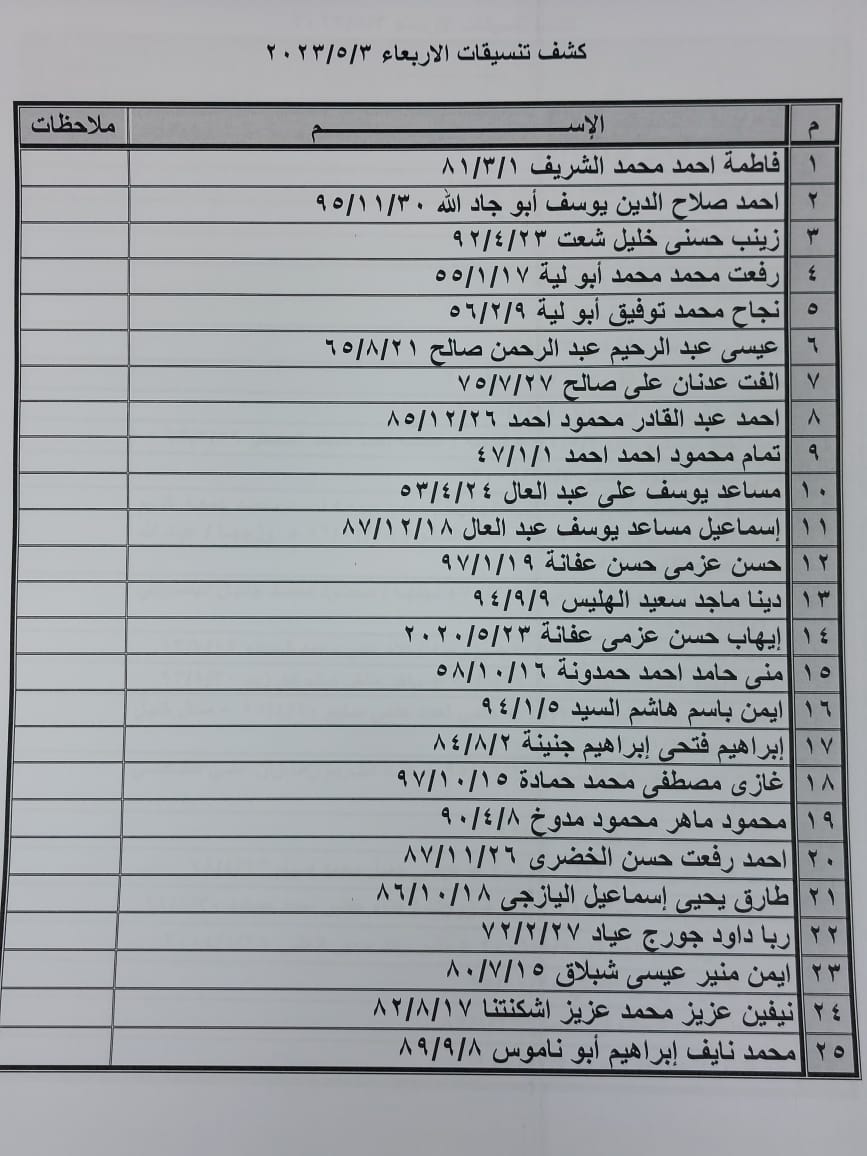 كشف تنسيقات الاربعاء ٢٠٢٣/٥/٣
م الإســـــــــم ملاحظات
١ فاطمة احمد محمد الشريف ٨١/٣/١
٢ احمد صلاح الدين يوسف أبو جاد الله ٩٥/١١/٣٠
٣ زينب حسنى خليل شعت ٩٢/٤/٢٣
٤ رفعت محمد محمد أبو لية ٥٥/١/١٧
٥ نجاح محمد توفيق أبو لية ٥٦/٢/٩
٦ عيسى عبد الرحيم عبد الرحمن صالح ٦٥/٨/٢١
٧ الفت عدنان على صالح ٧٥/٧/٢٧
٨ احمد عبد القادر محمود احمد ٨٥/١٢/٢٦
٩ تمام محمود احمد احمد ٤٧/١/١
١٠ مساعد يوسف على عبد العال ٥٣/٤/٢٤
١١ إسماعيل مساعد يوسف عبد العال ٨٧/١٢/١٨
١٢ حسن عزمى حسن عفانة ٩٧/١/١٩
١٣ دينا ماجد سعيد الهليس ٩٤/٩/٩
١٤ إيهاب حسن عزمى عفانة ٢٠٢٠/٥/٢٣
١٥ منى حامد احمد حمدونة ٥٨/١٠/١٦
١٦ ايمن باسم هاشم السيد ٩٤/١/٥
١٧ إبراهيم فتحى إبراهيم جنينة ٨٤/٨/٢
١٨ غازى مصطفى محمد حمادة ٩٧/١٠/١٥
١٩ محمود ماهر محمود مدوخ ٩٠/٤/٨
٢٠ احمد رفعت حسن الخضرى ٨٧/١١/٢٦
٢١ طارق يحيى إسماعيل اليازجى ٨٦/١٠/١٨
٢٢ ربا داود جورج عياد ٧٢/٢/٢٧
٢٣ ايمن منير عيسى شبلاق ٨٠/٧/١٥
٢٤ نيفين عزيز محمد عزيز اشكنتنا ٨٢/٨/١٧
٢٥ محمد نايف إبراهيم أبو ناموس ٨٩/٩/٨